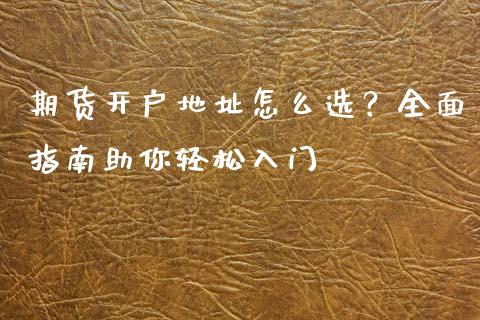 期货开户地址怎么选？全面
指南助你轻松入门